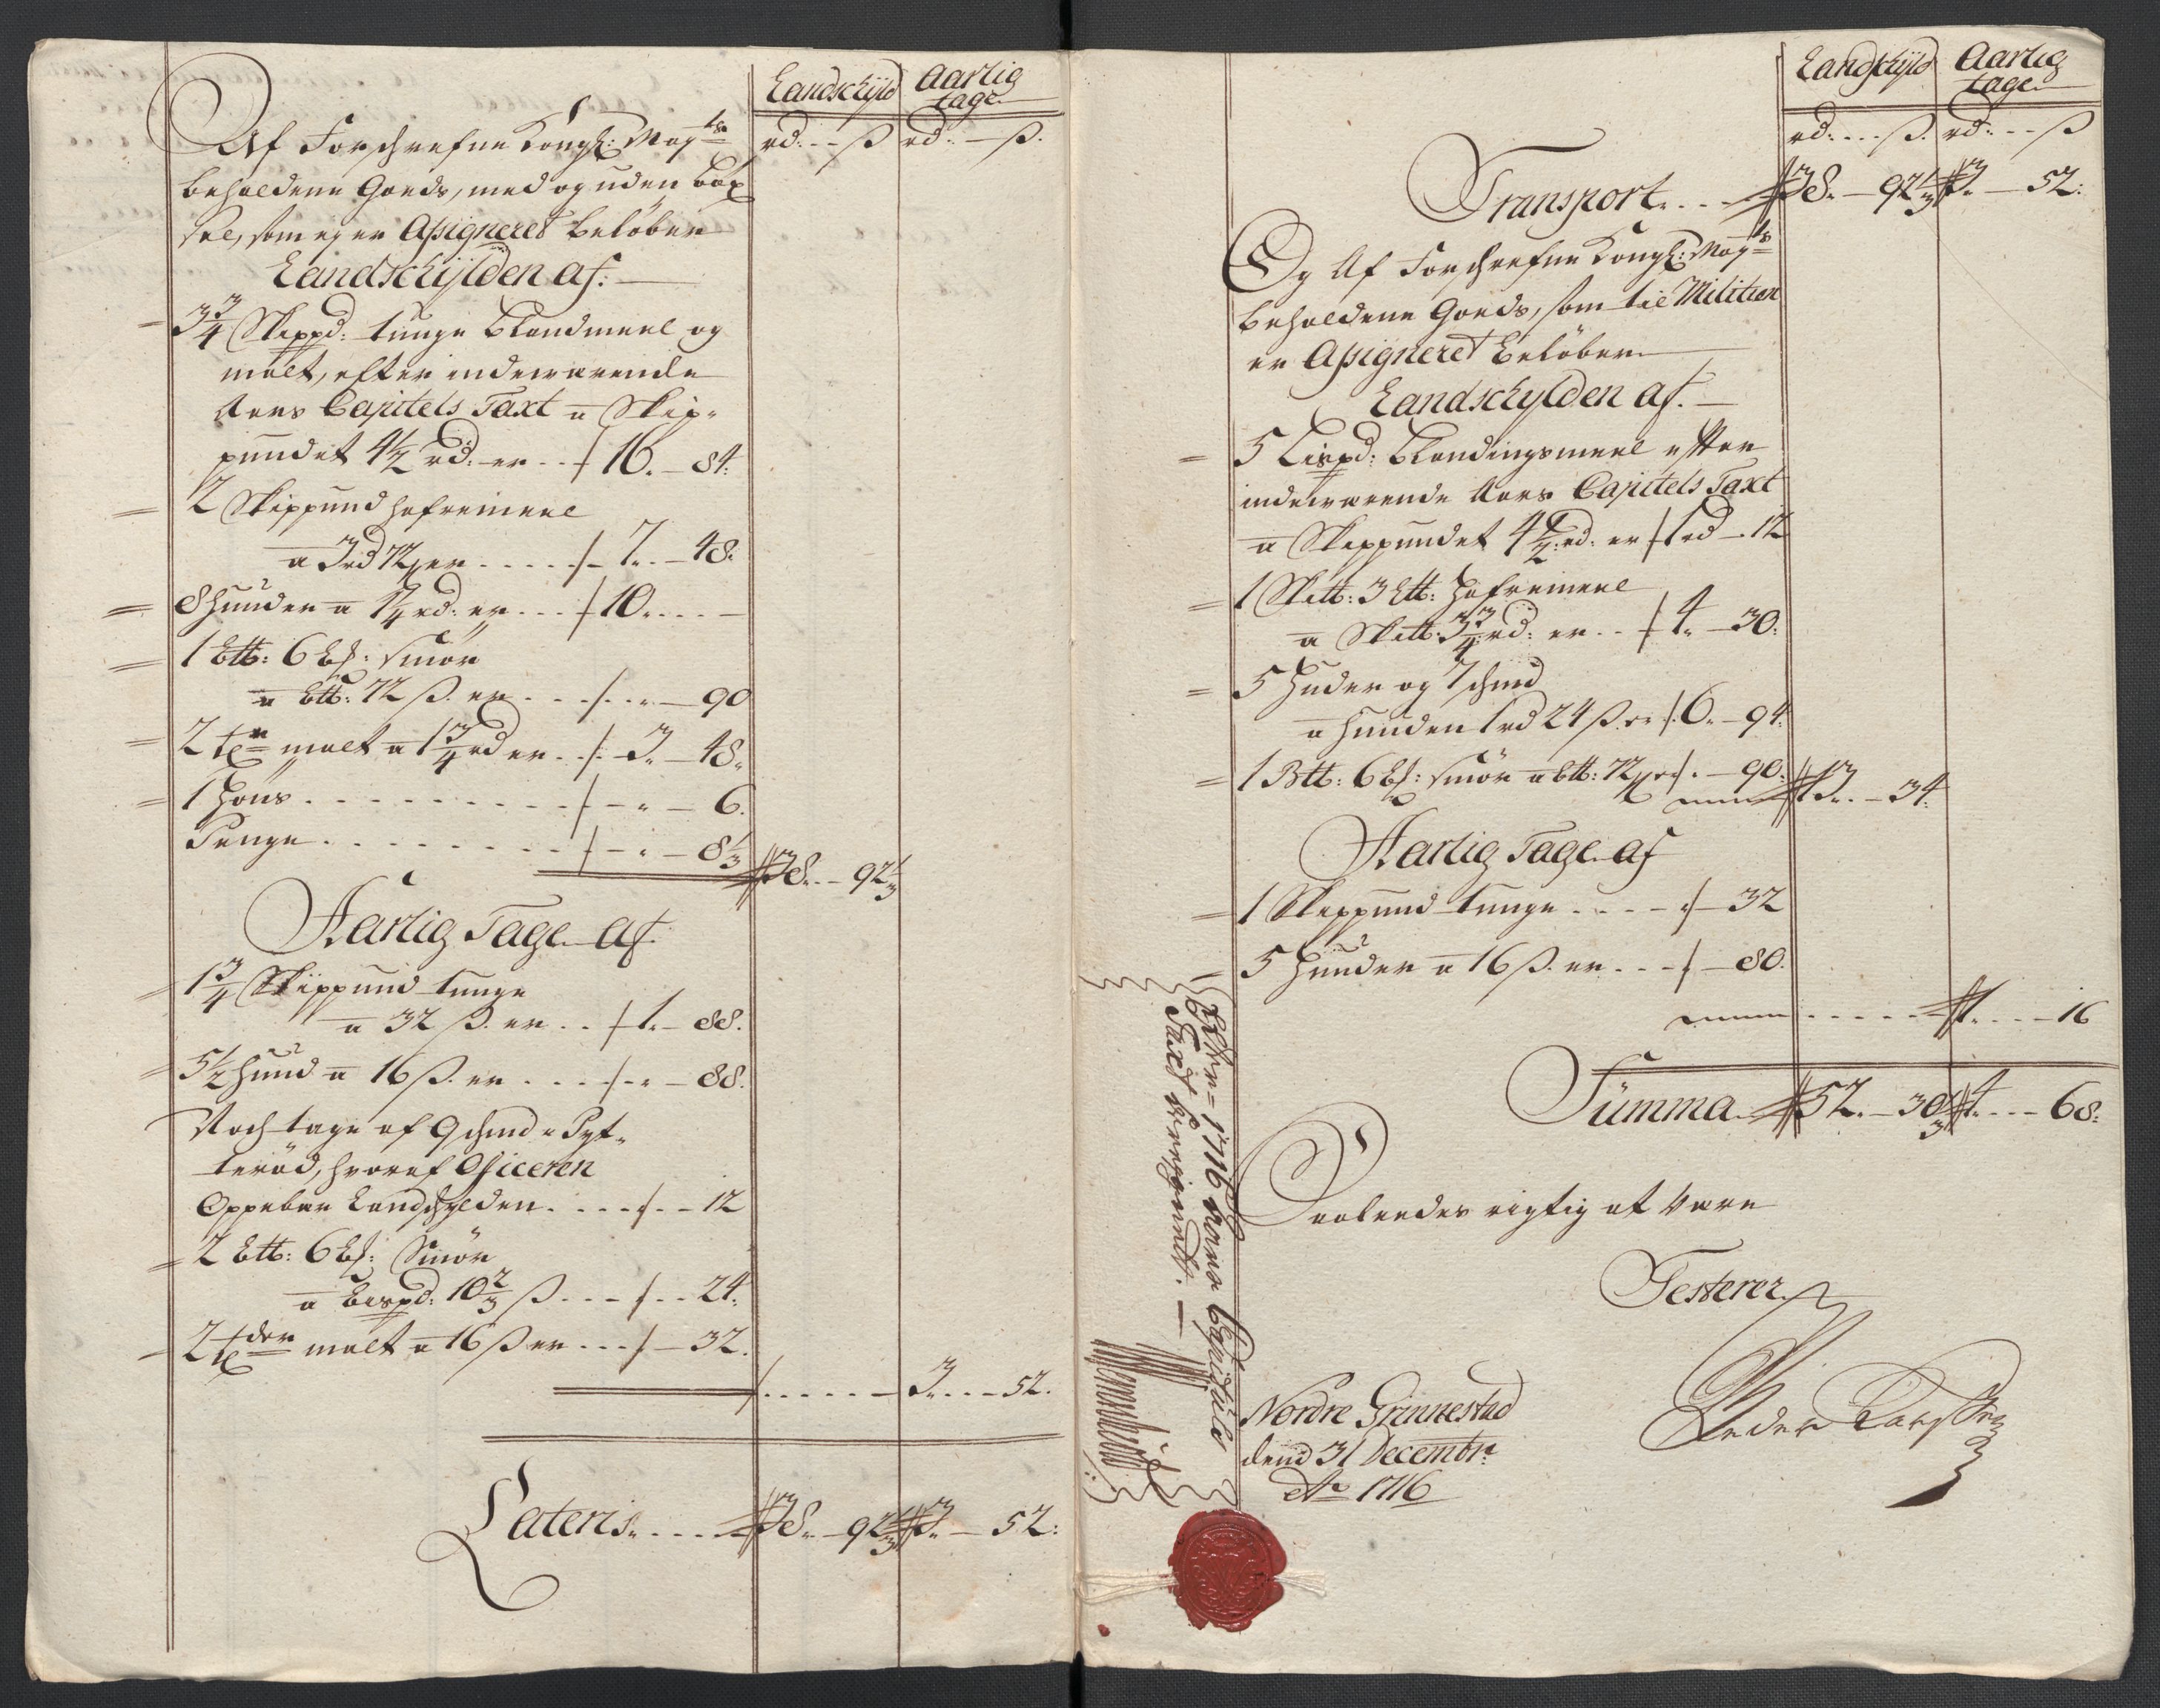 Landschyld Aarlig
tage
rd: - - ß rd: - ß.
Af Forschrefne Kongl: May.ts
beholdene Goeds, med og uden böx
sel, som ej er Assigneret beløber
Landschÿlden af:
3 3/4 Skippd: tunge blandmeel og
malt, efter indeværende
Aars Capitels Taxt a Skip-
pundet 4 1/2 rd: er - - 16. - 84.
2 Skippund hafremeel
a 3 rd 72 ß er . . . . . 7. - 48.
8 huuder a 1 1/4 rd: er . . . 10. . . .
1 Btt: 6 bſ: smör
a btt: 72 ß. er . . . . - 90
2 tr malt a 1 3/4 rd er . . 3. - 48.
1 höns . . . . . . . . . - " - 6.
Penge . . . . . . . . - " - 8 1/3
38. - 92 1/3
Aarlig Tage af
1 3/4 Skippund tunge
a 32 ß. er . . 1. - 88.
5 1/2 huud a 16 ß. er . . . . - 88.
Noch tage af 9 schind i
terød, hvoraf Officeren
Oppebær Landschylden . . . . - 12
2 btt: 6 bſ: Smör
a bispd: 10 2/3 ß . . . . . 24.
2 tder malt a 16 ß er . . . - 32.
3. . . . 52.
Lateris. . . . . 38. - 92 1/3 3. - 52:
Landschyld Aarlig
tage
rd: - - ß. rd: - - ß
Transport. . . . 38. - 92 1/3 3. - 52:
Og Af Forschrefne Kongl: May.ts
beholdene Goeds, som til Militien
er Assigneret beløber
Landschylden af.
5 Lispd: blandingsmeel efter
indeværende Aars Capitels Taxt
a Skippundet 4 1/2 rd: er 1 rd - 12
1 Sktt: 3 Ltt: hafremeel
a Sktt: 3 3/4 rd: er . . 4. - 30.
5 huder og 7 schind
a huuden 1 rd 24 ß. er 6. - 94.
1 Btt: 6 bſ: smör a btt: 72 ß er . - 90.
13. - 34.
Aarlig Tage af
1 Skippund tunge . . . . - 32
5 huuder a 16 ß. er . . . - 80.
1. . . . 16
Summa 52. - 30 1/3 4. . . . 68.
Saaledes rigtig at være
Testerer
Nordre Grinnestad
dend 31 Decembr:
Ao 1716
Peder Larssen
Efter 1716 Aars Capituls
Taxt beregnet.